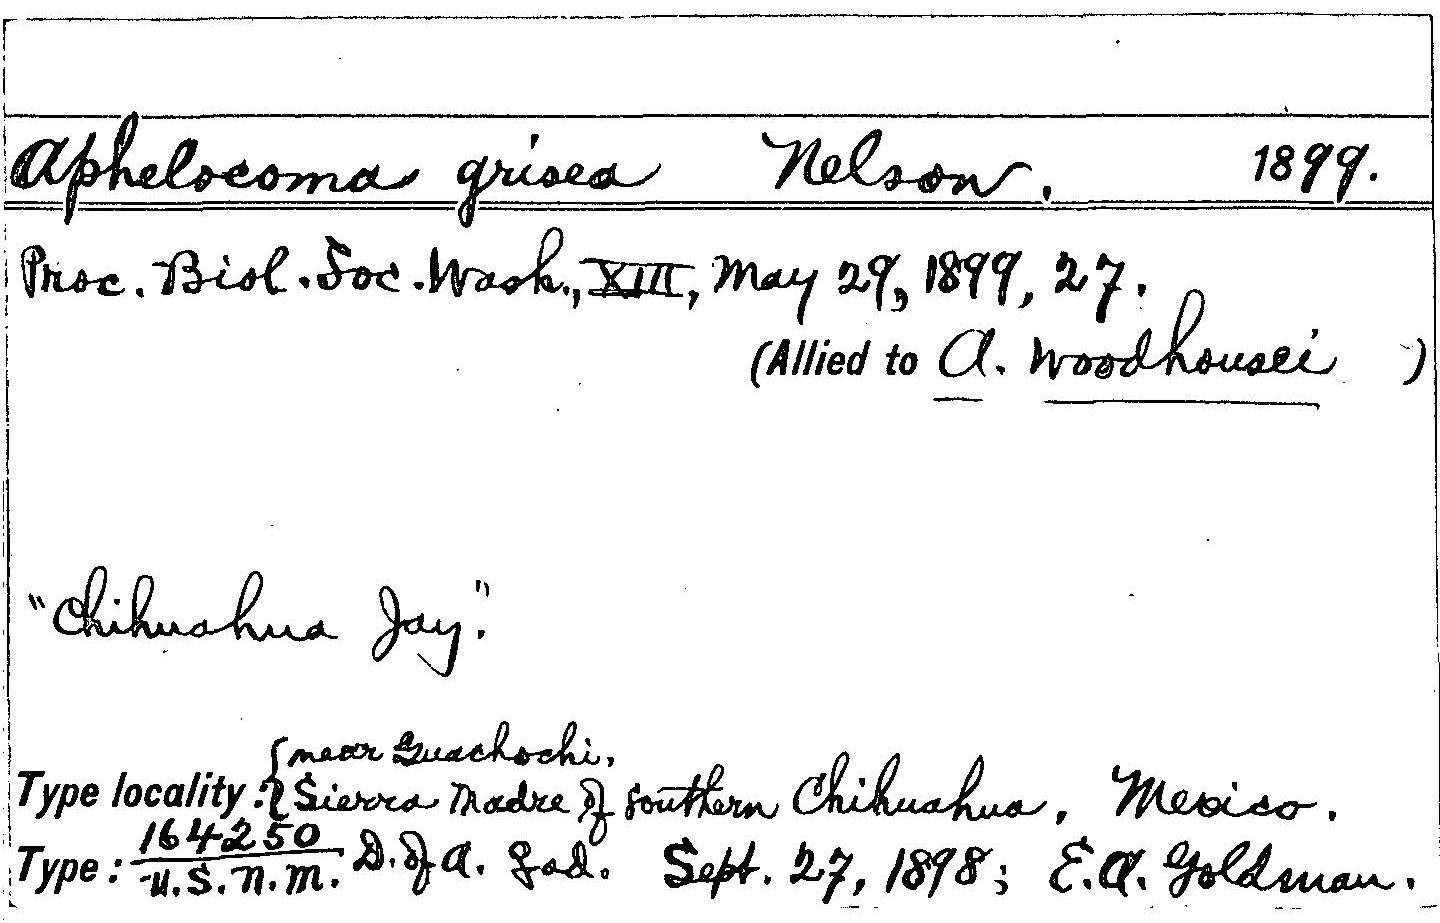 Aphelocoma grisea Nelson. 1899.
Proc. Biol. Soc. Wash., XIII, May 29, 1899, 27.
(Allied to A. woodhousei )
"Chihuahua Jay."
near Guachochi,
Type locality: Sierra Madre of southern Chihuahua, Mexico.
164250
Type: U.S.N.M. D. of A. ♀ad. Sept. 27, 1898; E.A. Goldman.